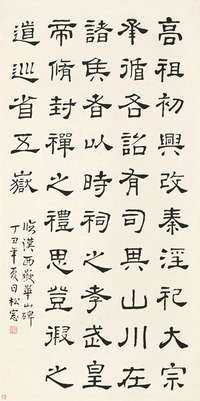 高祖初興改秦淫祀大宗
承循各詔有司其山川在
諸侯者以時祠之孝武皇
帝脩封禪之禮思登徦之
道巡省五嶽
臨漢西嶽華山碑
丁丑年夏日松窓